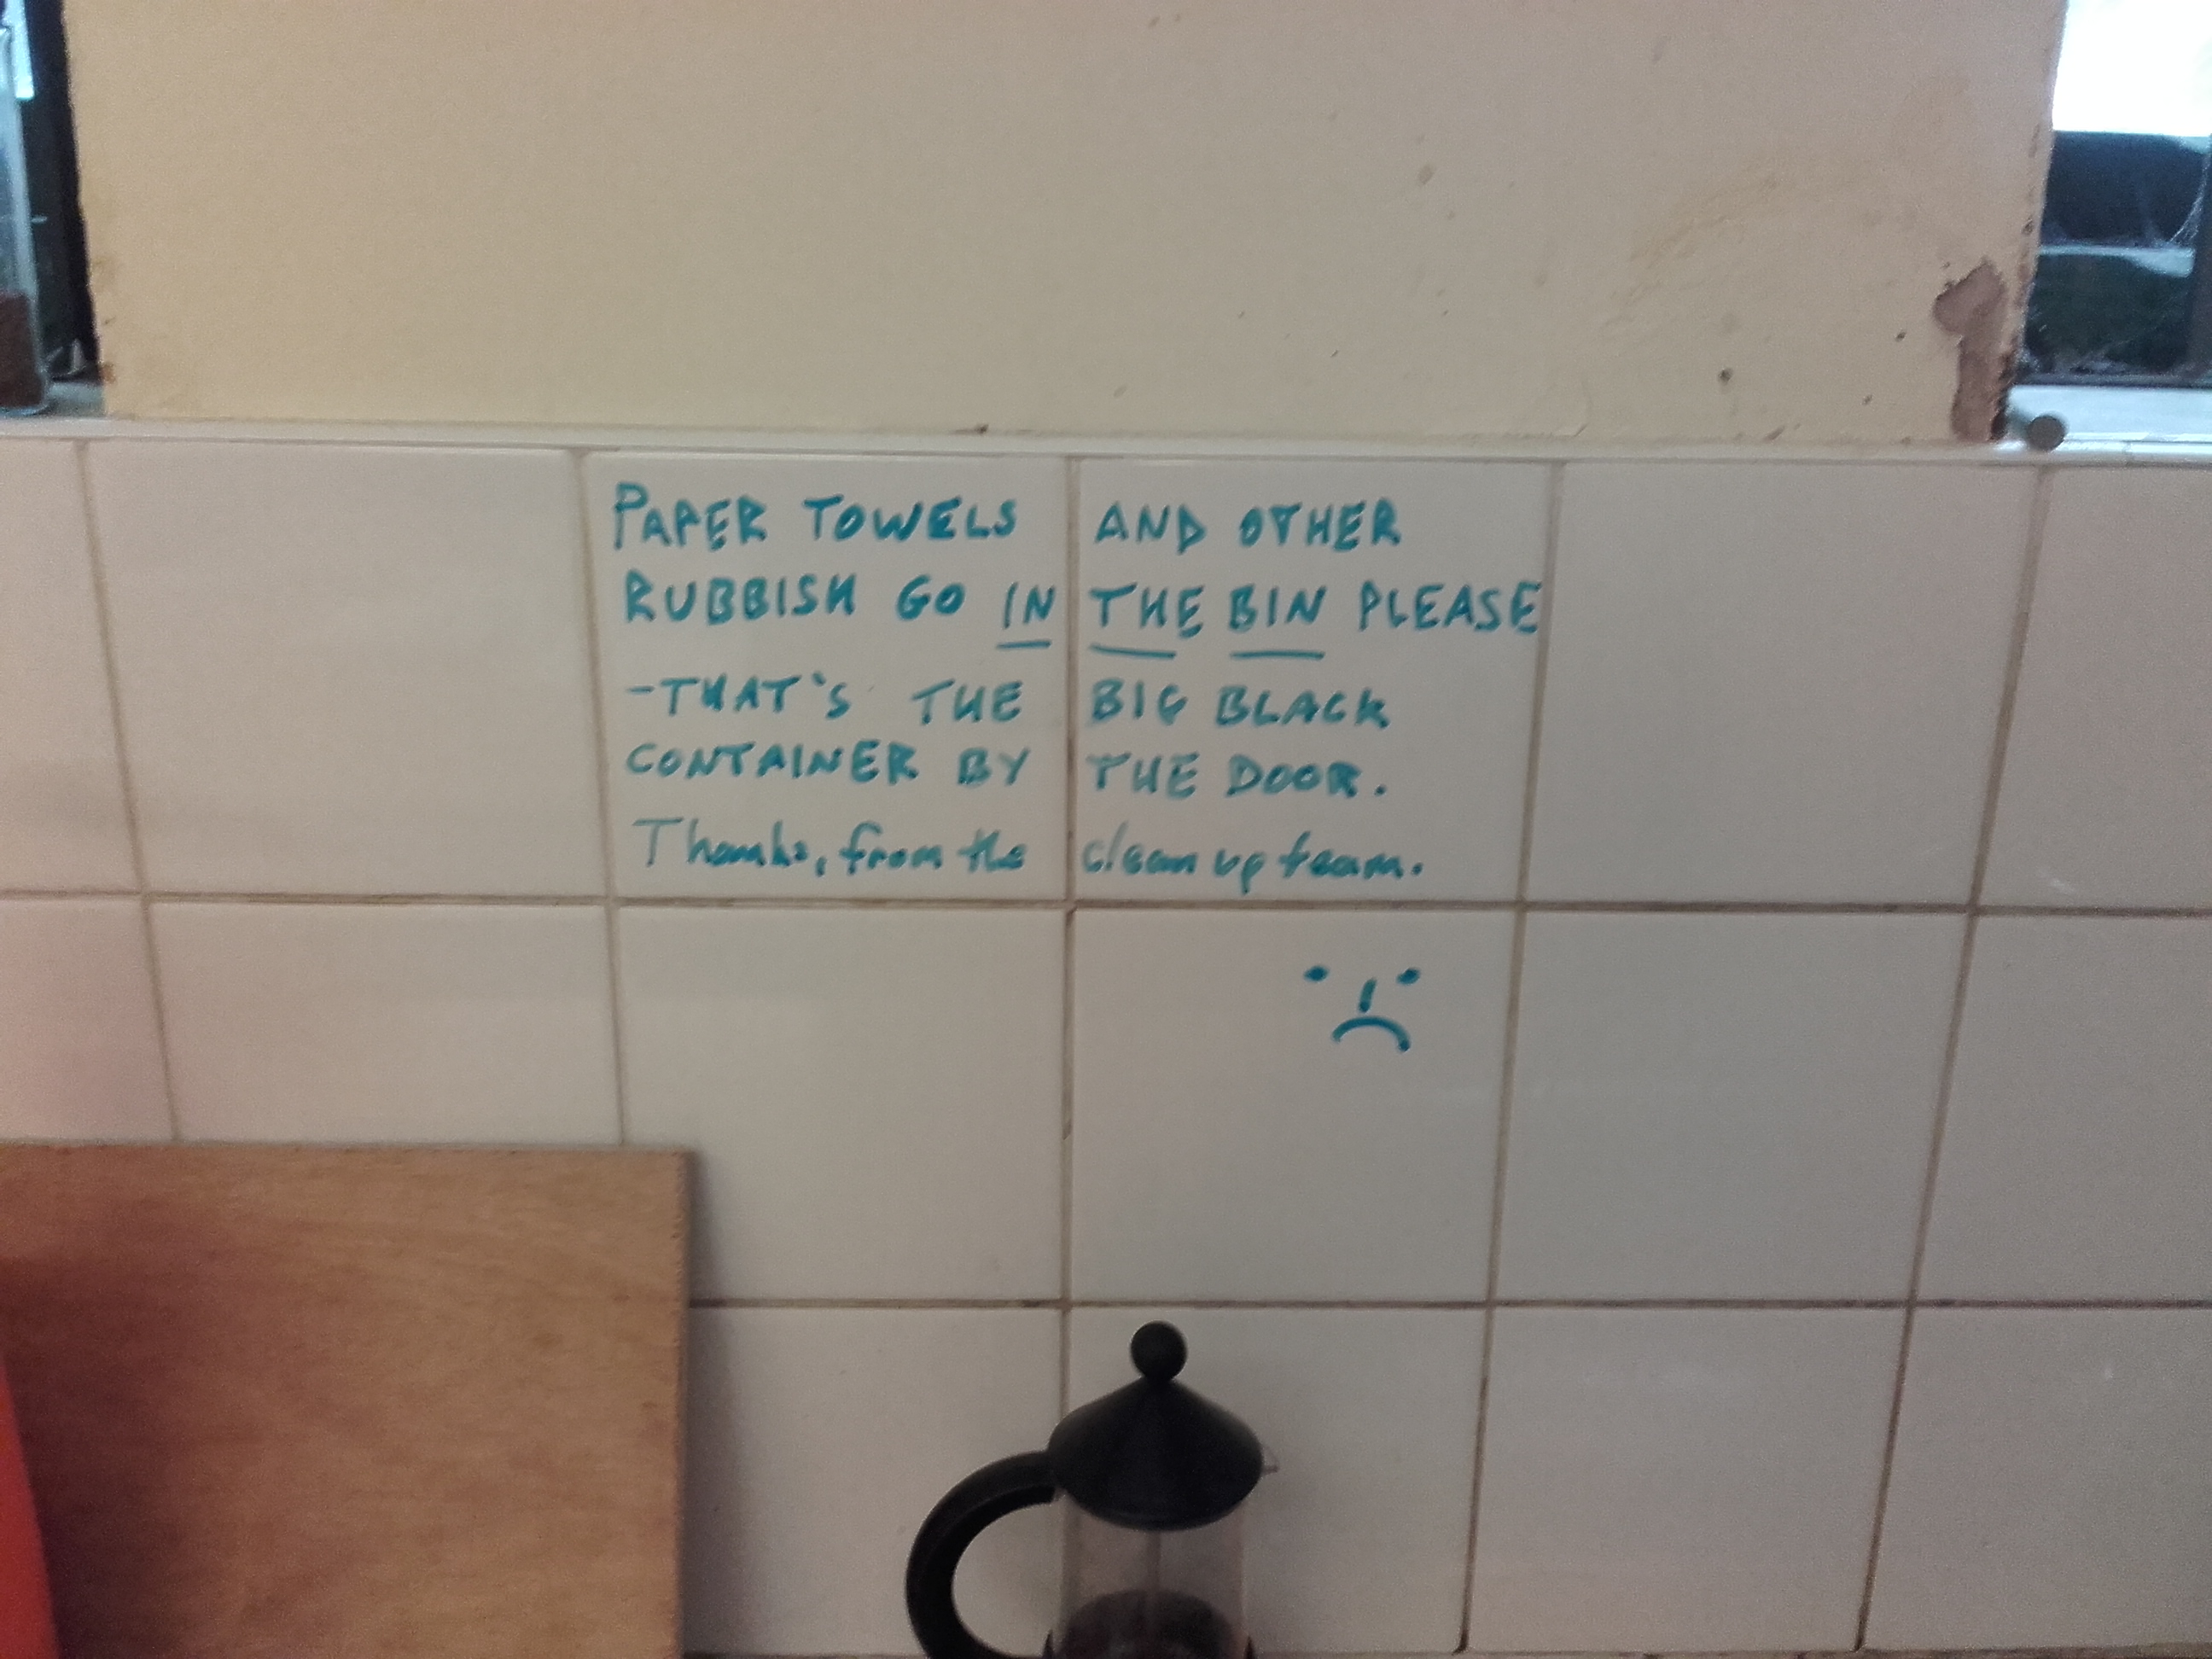 PAPER TOWELS AND OTHER
RUBBISH GO IN THE BIN PLEASE
-THAT'S THE BIG BLACK
CONTAINER BY THE DOOR.
Thanks, from the clean up team.